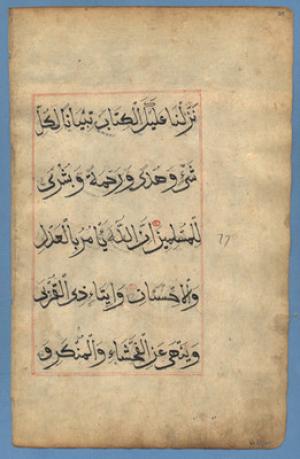 نَزَّلْنَا عَلَيْكَ الْكِتَابَ تِبْيَانًا لِكُلِّ
شَيْءٍ وَهُدًى وَرَحْمَةً وَبُشْرَى
لِلْمُسْلِمِينَ إِنَّ اللَّهَ يَأْمُرُ بِالْعَدْلِ
وَالْإِحْسَانِ وَإِيتَاءِ ذِي الْقُرْبَى
وَيَنْهَى عَنِ الْفَحْشَاءِ وَالْمُنْكَرِ وَ